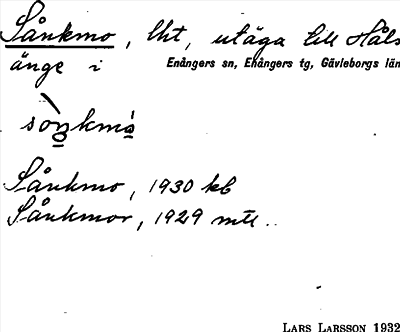 Sånkmo, lht, utäga till Håls
änge i Enångers sn, Enångers tg, Gävleborgs län
Sånkmo, 1930 kb
Sånkmor, 1929 mtl..
LARS LARSSON 1932